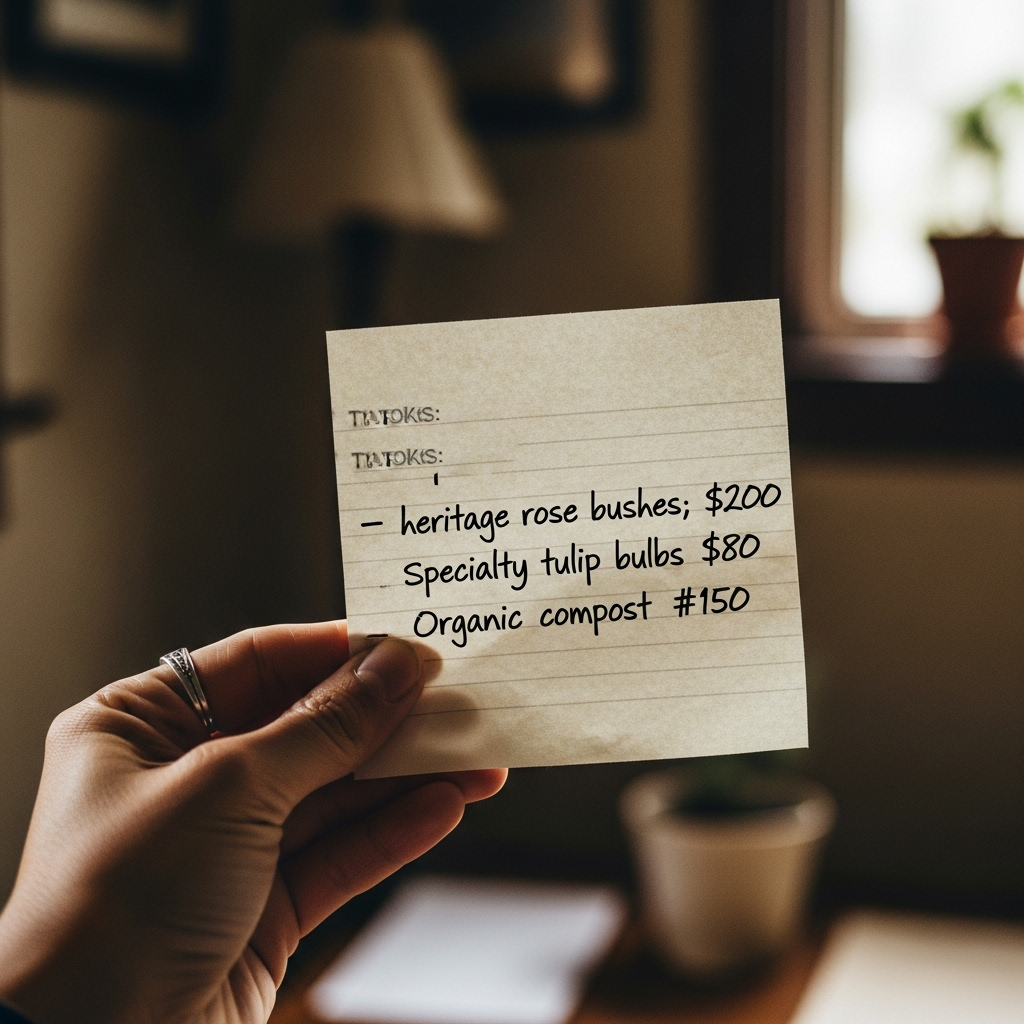 – heritage rose bushes; $200
Specialty tulip bulbs $80
– Organic compost #150